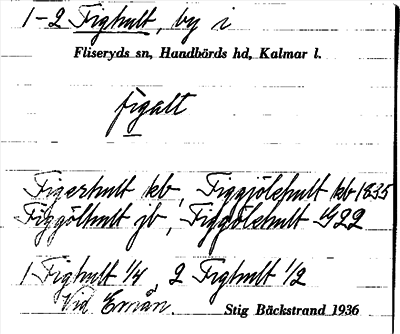 1-2 Fighult, by i
Fliseryds sn, Handbörds hd, Kalmar l.
figalt
Figerhult kb, Figgjölehult kb 1835
Figgölhult jb, Figgölehult G22
1 Fighult 1/4 2 Fighult 1/2
Vid Emån.
Stig Bäckstrand 1936